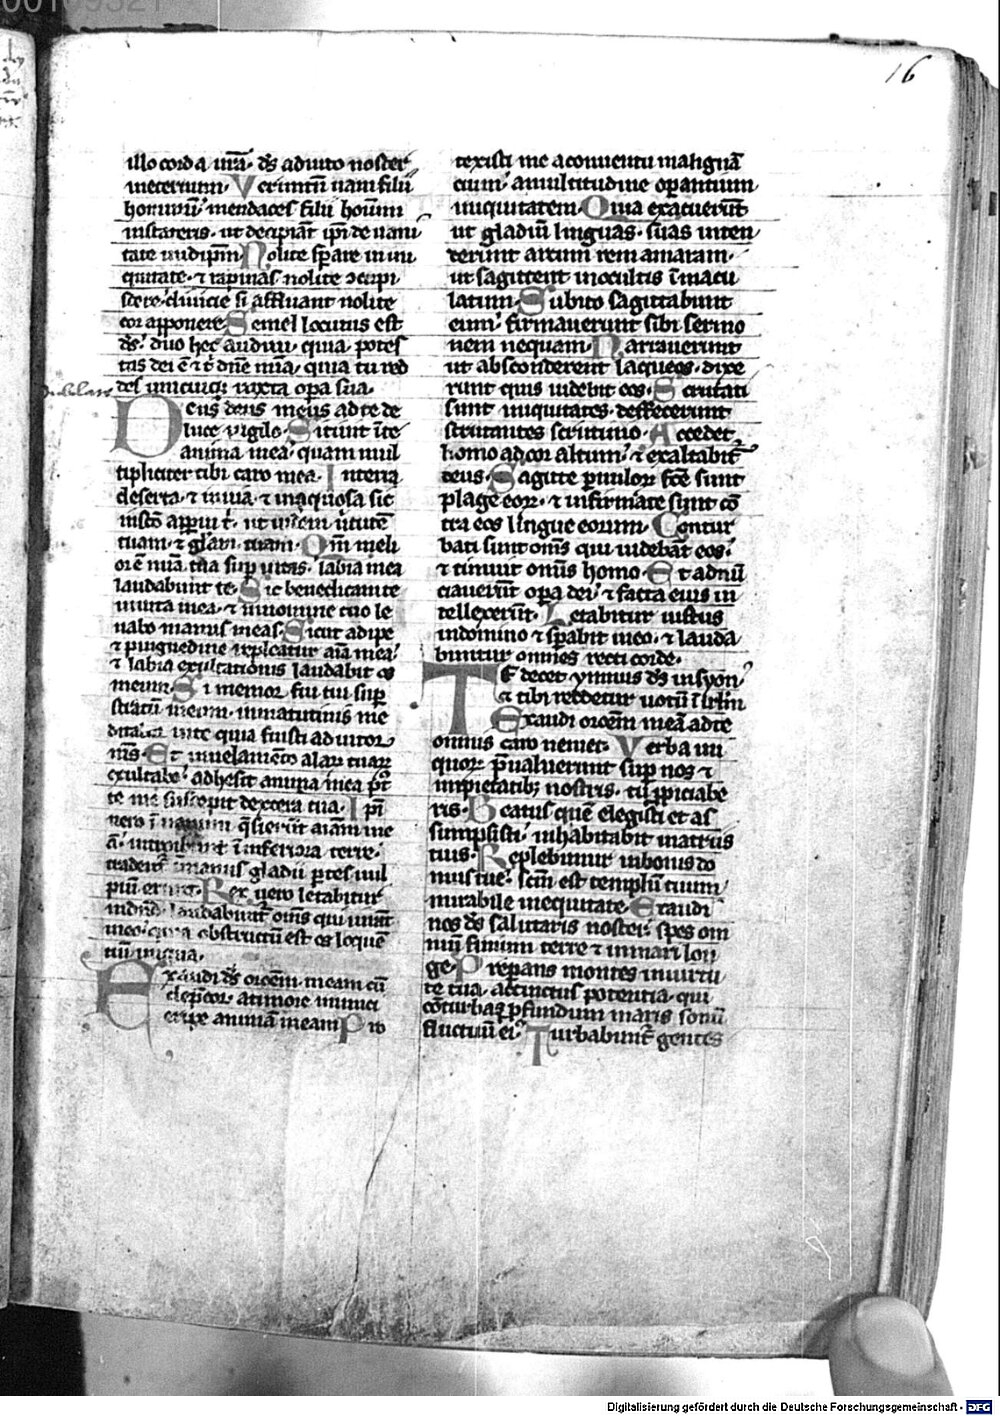 16
illo corda vr̄a · ds̄ adiuto noster
ineternum · Verūtn̄ vani filii
hominū · mendaces filii hoīum
instateris · ut decipiāt ip̄i de uani
tate inidip̄m · Nolite sp̄are in ini
quitate · ⁊ rapinas nolite ɔcupi
scere · diuicie si affluant nolite
cor apponere Semel locutus est
ds̄ · duo hec audiui · quia potes
tas dei ē ⁊ t̄ dn̄e mīa · quia tu red
des unicuiq; iuxta opa sua ·
Deus deus meus ad te de
luce vigilo · Sitiuit ī te
anima mea · quam mul
tipliciter tibi caro mea · In terra
deserta · ⁊ inuia · ⁊ inaquosa sic
in sc̄o apparui t̄ · ut uiderem uirtutē
tuam · ⁊ gl̄am tuam · Qm̄ meli
or ē mīa tua sup uitas · labia mea
laudabunt te · Sic benedicam te
in uita mea · ⁊ in nomine tuo le
uabo manus meas · Sicut adipe
⁊ pinguedine repleatur aīa mea ·
⁊ labia exultationis laudabit os
meum · Si memor fui tui sup
stratū meum · in matutinis me
ditabor in te quia fuisti adiutor
ms̄ · Et in uelamēto alaꝝ tuaꝝ
exultabo · adhesit anima mea p̄t
te me suscepit dextera tua · Ip̄i
uero ī uanum q̄sierūt aīam me
ā · introibunt ī inferiora terre ·
tradent̄ ī manus gladii partes uul
piū erunt · Rex uero letabitur
in dn̄o · laudabunt̄ om̄s qui iurāt
in eo · quia obstructū est os loquē
tiū iniqua ·
Exaudi ds̄ or̄oem meam cū
dep̄cor · a timore inimici
eripe animā meam Pro
texisti me a conuentu malignā
cium · a multitudine operantium
iniquitatem · Quia exacuerūt
ut gladiū linguas · suas inten
derunt arcum rem amaram ·
ut sagittent in ocultis īmacu
latum · Subito sagittabunt
eum · firmauerunt sibi sermo
nem nequam · Narrauerunt
ut absconderent laqueos · dixe
runt quis uidebit eos · Scrutati
sunt iniquitates · deffecerunt
scrutantes scrutinio · Accedet
homo ad cor altum · ⁊ exaltabit̄
deus · Sagitte paruuloꝝ fc̄e sunt
plage eoꝝ · ⁊ infirmate sunt cō
tra eos lingue eorum · Contur
bati sunt om̄s qui uidebāt eos ·
⁊ timuit omnis homo · Et adnū
ciauerūt opa dei · ⁊ facta eius in
tellexerūt · Letabitur iustus
in domino ⁊ sp̄abit in eo · ⁊ lauda
buntur omnes recti corde ·
Te decet ymnus ds̄ in syon ·
⁊ tibi reddetur uotū ī irl̄m
Exaudi or̄oem meā ad te
omnis caro veniet · Verba ini
quoꝝ p̄ualuerunt sup nos ⁊
impietatib; nostris · tu p̄piciabe
ris · Beatus quē elegisti et as
sumpsisti · inhabitabit in atriis
tuis · Replebimur in bonis do
mus tue · scm̄ est templū tuum
mirabile in equitate · Exaudi
nos ds̄ salutaris noster · spes om
niū finium terre ⁊ in mari lon
ge · Preparans montes in uirtu
te tua · accinctus potentia · qui
cōturbas p̄fundum maris sonū
fluctuū ei · Turbabunt̄ gentes
Digitalisierung gefördert durch die Deutsche Forschungsgemeinschaft - DFG